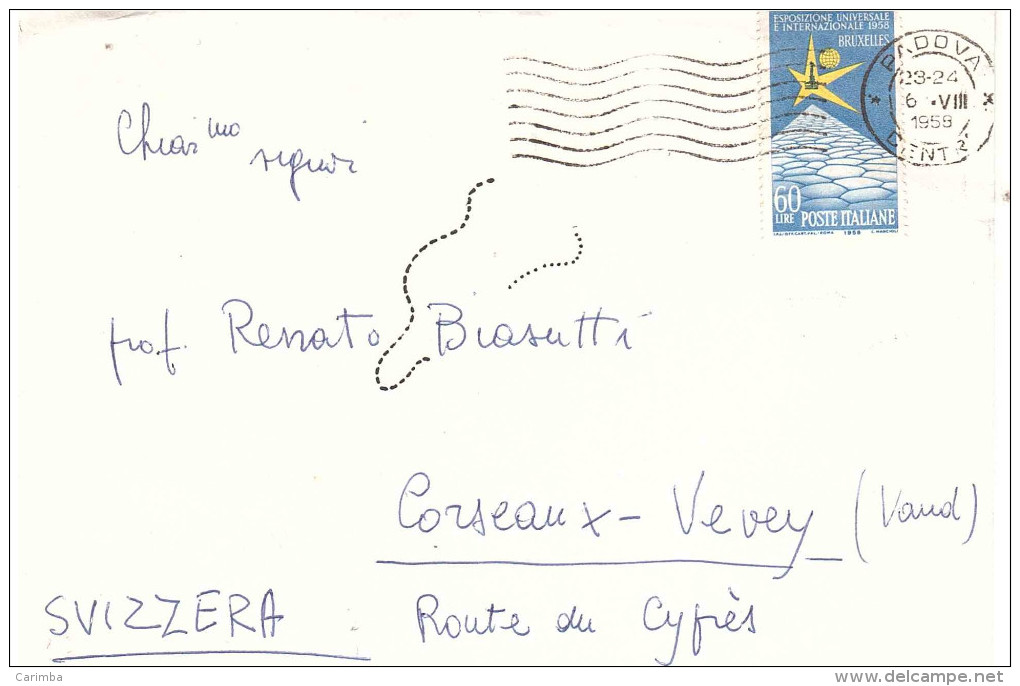 ESPOSIZIONE UNIVERSALE
E INTERNAZIONALE 1958
BRUXELLES
PADOVA
23-24
6 ·VIII
1958
CENT
60
LIRE POSTE ITALIANE
1958
Chiar mo
signor
prof. Renato Biasutti
Corseaux - Vevey (Vaud)
SVIZZERA Route du Cyprès
Carimba
www.delcampe.net